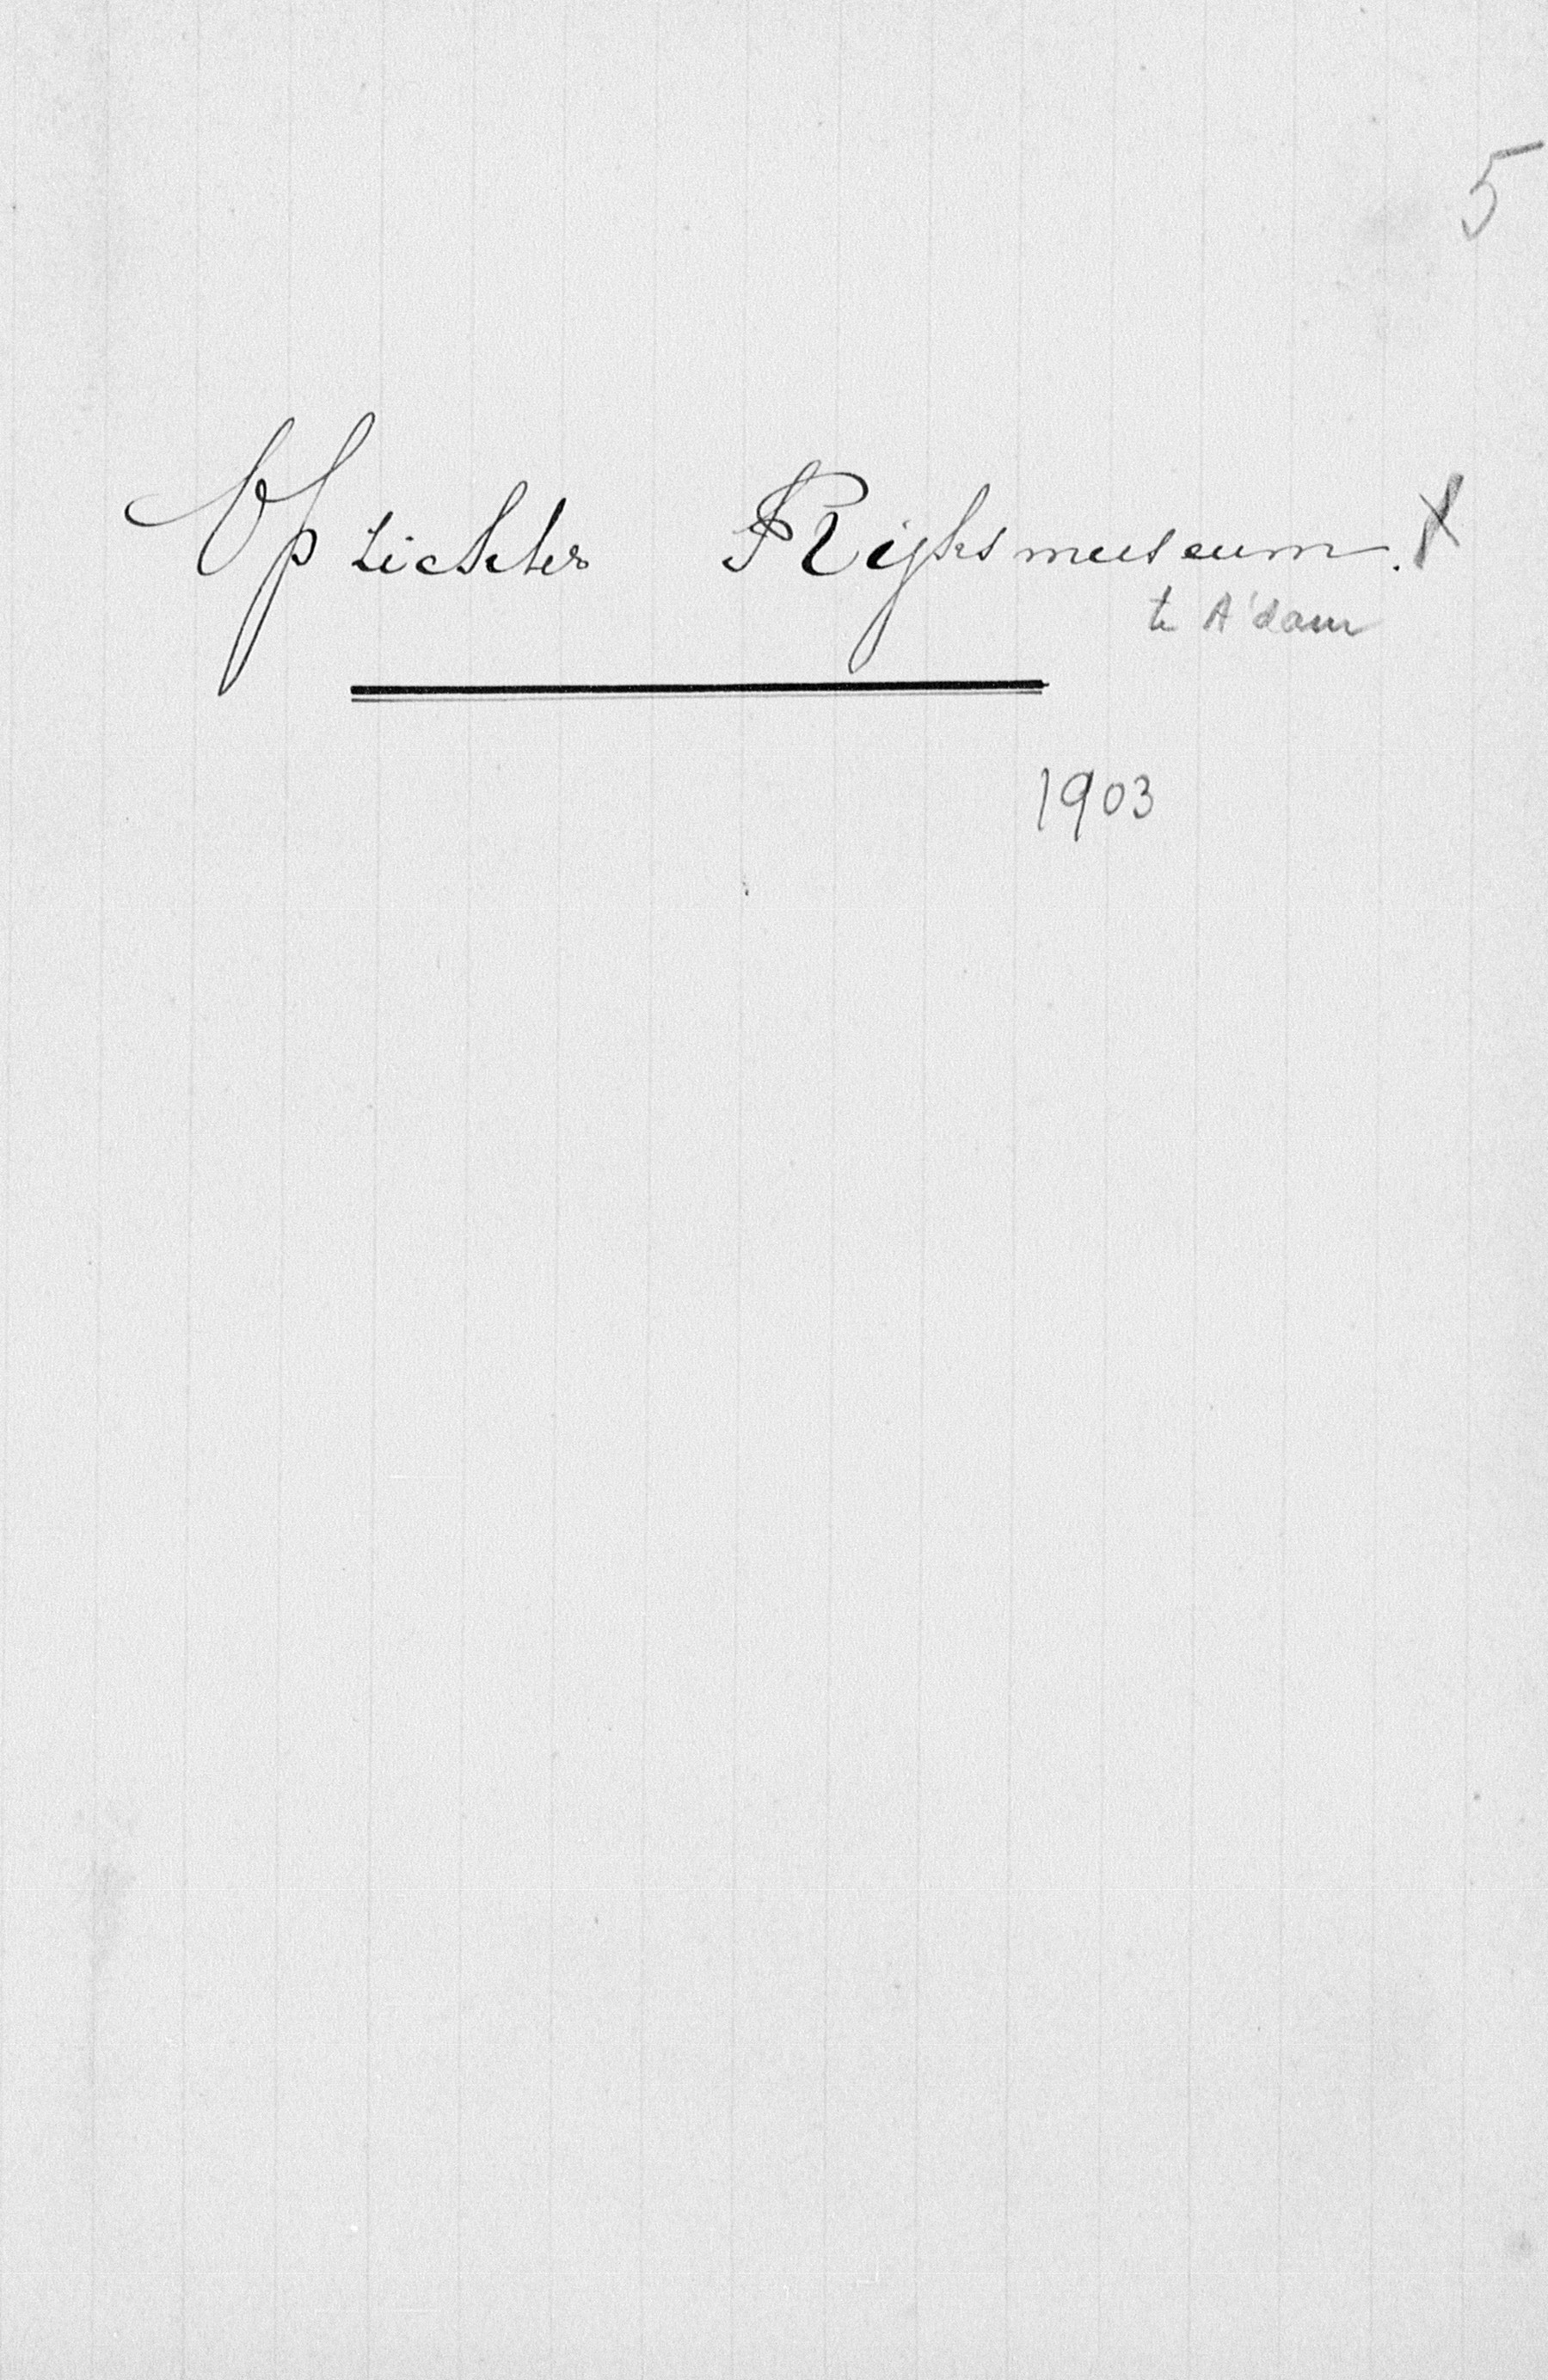 5
Opzichter Rijksmuseum. X
te A'dam
1903